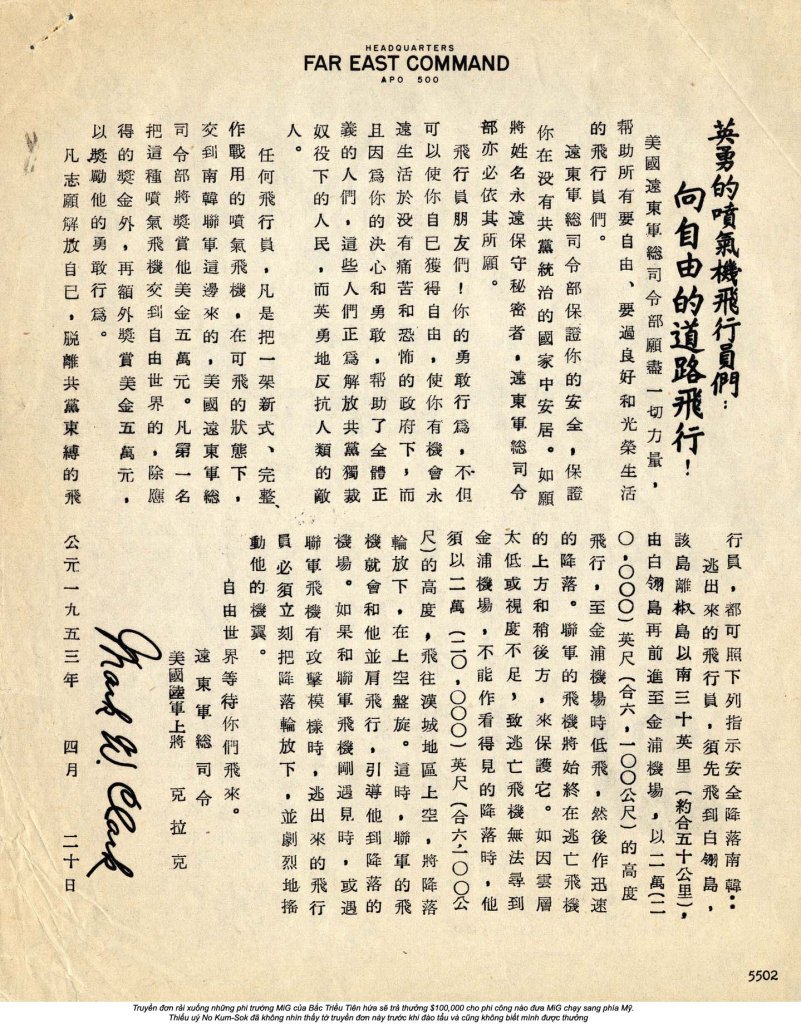 HEADQUARTERS
FAR EAST COMMAND
APO 500
英勇的噴氣機飛行員們:
向自由的道路飛行!
美國遠東軍總司令部願盡一切力量,
幫助所有要自由、要過良好和光榮生活
的飛行員們。
遠東軍總司令部保證你的安全,保證
你在没有共黨統治的國家中安居。如願
將姓名永遠保守秘密者,遠東軍總司令
部亦必依其所願。
飛行員朋友們!你的勇敢行爲,不但
可以使你自已獲得自由,使你有機會永
遠生活於没有痛苦和恐怖的政府下,而
且因爲你的決心和勇敢,帮助了全體正
義的人們,這些人們正爲解放共黨獨裁
奴役下的人民,而英勇地反抗人類的敵
人。
任何飛行員,凡是把一架新式、完整、
作戰用的噴氣飛機,在可飛的狀態下,
交到南韓聯軍這邊來的,美國遠東軍總
司令部將獎賞他美金五萬元。凡第一名
把這種噴氣飛機交到自由世界的,除應
得的獎金外,再額外獎賞美金五萬元,
以獎勵他的勇敢行爲。
凡志願解放自已,脱離共黨束縛的飛
行員,都可照下列指示安全降落南韓:
逃出來的飛行員,須先飛到白翎島,
該島離椒島以南三十英里(約合五十公里),
由白翎島再前進至金浦機場,以二萬(二
〇,〇〇〇)英尺(合六,一〇〇公尺)的高度
飛行,至金浦機場時低飛,然後作迅速
的降落。聯軍的飛機將始終在逃亡飛機
的上方和稍後方,來保護它。如因雲層
太低或視度不足,致逃亡飛機無法尋到
金浦機場,不能作看得見的降落時,他
須以二萬(二〇,〇〇〇)英尺(合六,一〇〇公
尺)的高度,飛往漢城地區上空,將降落
輪放下,在上空盤旋。這時,聯軍的飛
機就會和他並肩飛行,引導他到降落的
機場。如果和聯軍飛機剛遇見時,或遇
聯軍飛機有攻擊模樣時,逃出來的飛行
員必須立刻把降落輪放下,並劇烈地搖
動他的機翼。
自由世界等待你們飛來。
遠東軍總司令
美國陸軍上將 克拉克
Mark W. Clark
公元一九五三年 四月 二十日
5502
Truyền đơn rải xuống những phi trường MIG của Bắc Triều Tiên hứa sẽ trả thưởng $100,000 cho phi công nào đưa MIG chạy sang phía Mỹ.
Thiếu uý No Kum-Sok đã không nhìn thấy tờ truyền đơn này trước khi đào tẩu và cũng không biết mình được thưởng